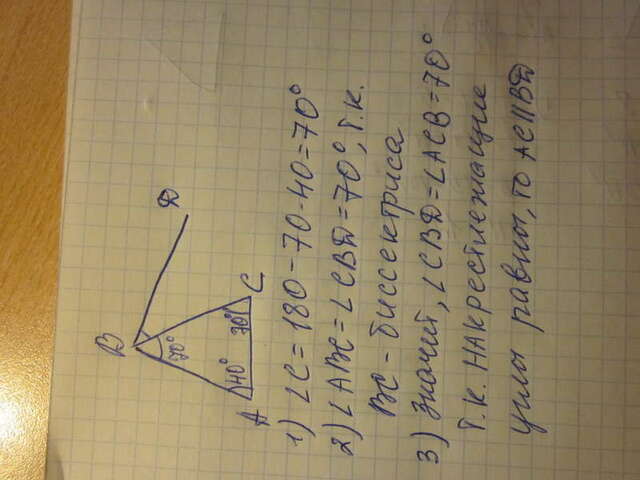 B
D
70°
40°
70°
A
C
1) ∠C = 180 - 70 - 40 = 70°
2) ∠ABC = ∠CBD = 70°, т.к.
BC - биссектриса
3) Значит, ∠CBD = ∠ACB = 70°
т.к. накрестлежащие
углы равны, то AC || BD